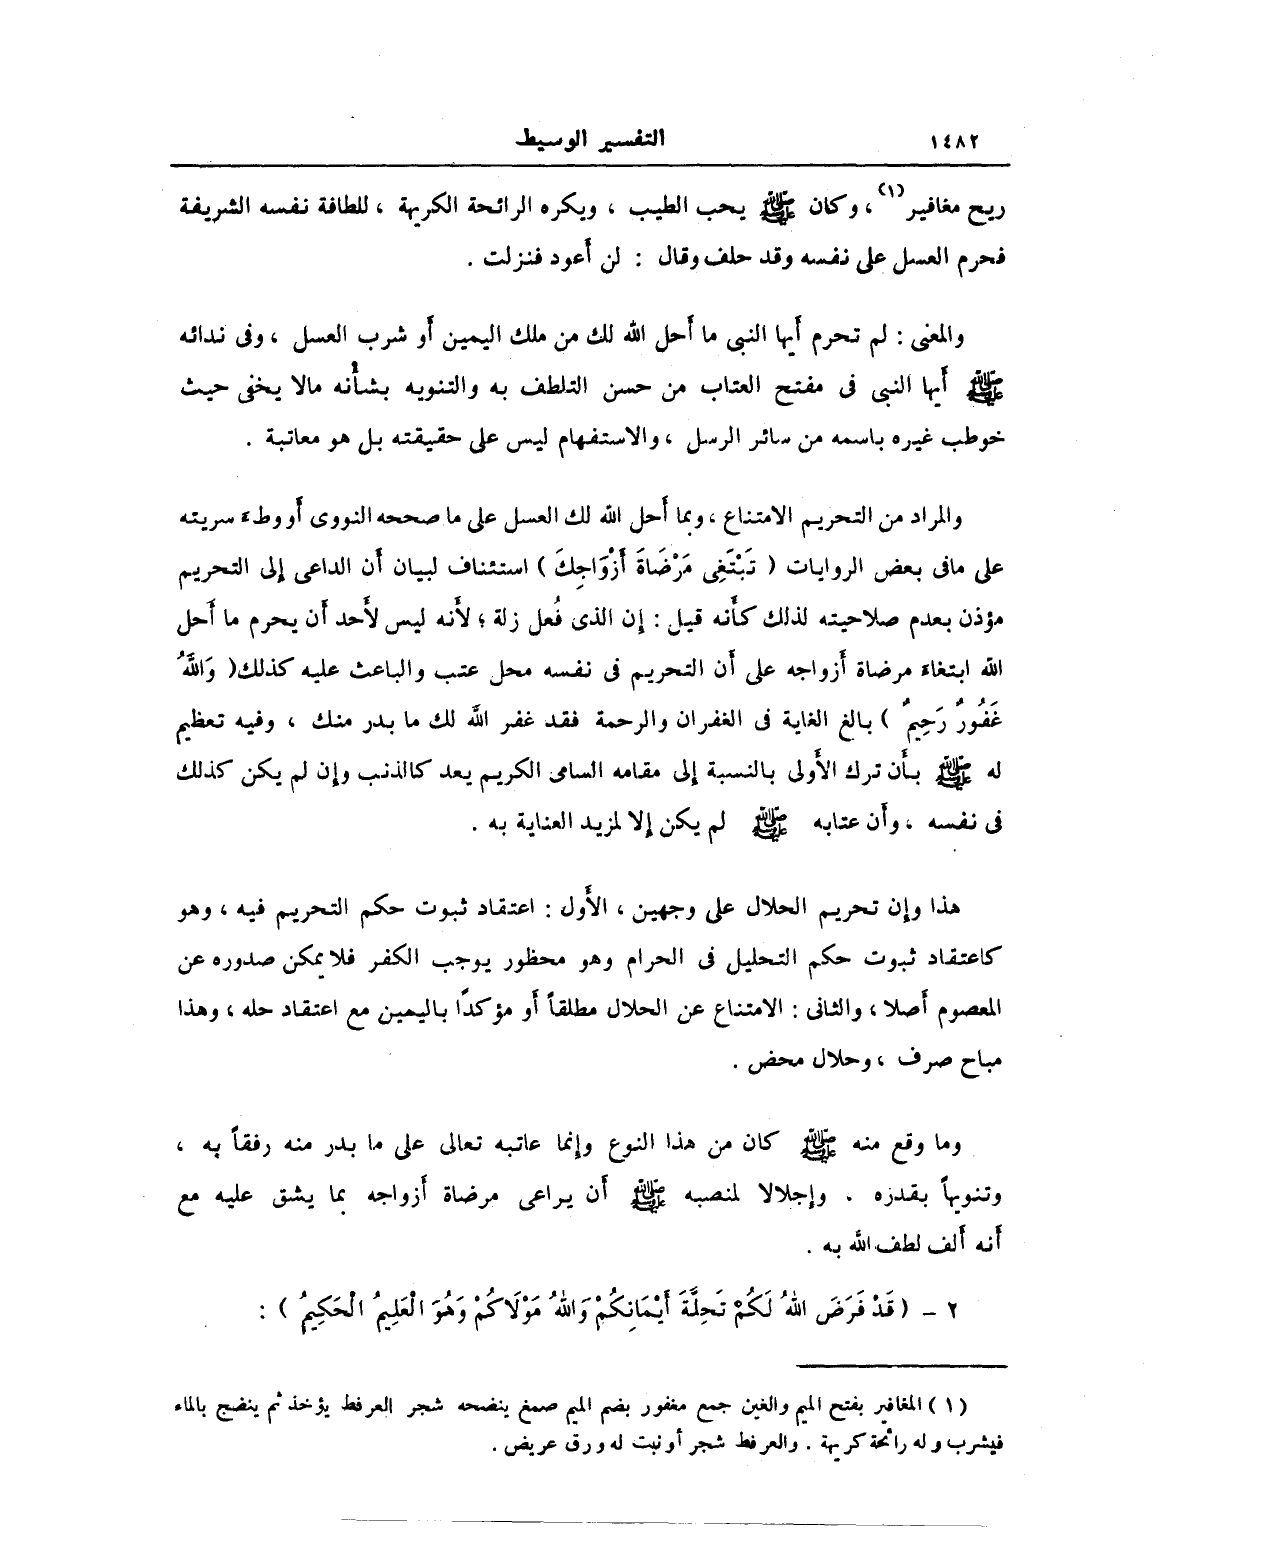 ١٤٨٢ التفسير الوسيط
ريح مغافير(١) ، وكان ﷺ يحب الطيب ، ويكره الرائحة الكريهة ، للطافة نفسه الشريفة
فحرم العسل على نفسه وقد حلف وقال : لن أعود فنزلت .
والمعنى : لم تحرم أيها النبى ما أحل الله لك من ملك اليمين أو شرب العسل ، وفى ندائه
ﷺ أيها النبى فى مفتح العتاب من حسن التلطف به والتنويه بشأنه مالا يخفى حيث
خوطب غيره باسمه من سائر الرسل ، والاستفهام ليس على حقيقته بل هو معاتبة .
والمراد من التحريم الامتناع ، وبما أحل الله لك العسل على ما صححه النووى أو وطء سريته
على مافى بعض الروايات ( تَبْتَغِى مَرْضَاةَ أَزْوَاجِكَ ) استئناف لبيان أن الداعى إلى التحريم
مؤذن بعدم صلاحيته لذلك كأنه قيل : إن الذى فُعل زلة ؛ لأنه ليس لأحد أن يحرم ما أحل
الله ابتغاء مرضاة أزواجه على أن التحريم فى نفسه محل عتب والباعث عليه كذلك( وَاللهُ
غَفُورٌ رَحِيمٌ ) بالغ الغاية فى الغفران والرحمة فقد غفر الله لك ما بدر منك ، وفيه تعظيم
له ﷺ بأن ترك الأولى بالنسبة إلى مقامه السامى الكريم يعد كالذنب وإن لم يكن كذلك
فى نفسه ، وأن عتابه ﷺ لم يكن إلا لمزيد العناية به .
هذا وإن تحريم الحلال على وجهين ، الأول : اعتقاد ثبوت حكم التحريم فيه ، وهو
كاعتقاد ثبوت حكم التحليل فى الحرام وهو محظور يوجب الكفر فلا يمكن صدوره عن
المعصوم أصلا ، والثانى : الامتناع عن الحلال مطلقاً أو مؤكدًا باليمين مع اعتقاد حله ، وهذا
مباح صرف ، وحلال محض .
وما وقع منه ﷺ كان من هذا النوع وإنما عاتبه تعالى على ما بدر منه رفقاً به ،
وتنويهاً بقدره . وإجلالا لمنصبه ﷺ أن يراعى مرضاة أزواجه بما يشق عليه مع
أنه ألف لطف الله به .
٢ - ( قَدْ فَرَضَ اللهُ لَكُمْ تَحِلَّةَ أَيْمَانِكُمْ وَاللهُ مَوْلَاكُمْ وَهُوَ الْعَلِيمُ الْحَكِيمُ ) :
(١) المغافير بفتح الميم والغين جمع مغفور بضم الميم صمغ ينضحه شجر العرفط يؤخذ ثم ينضج بالماء
فيشرب وله رائحة كريهة . والعرفط شجر أو نبت له ورق عريض .